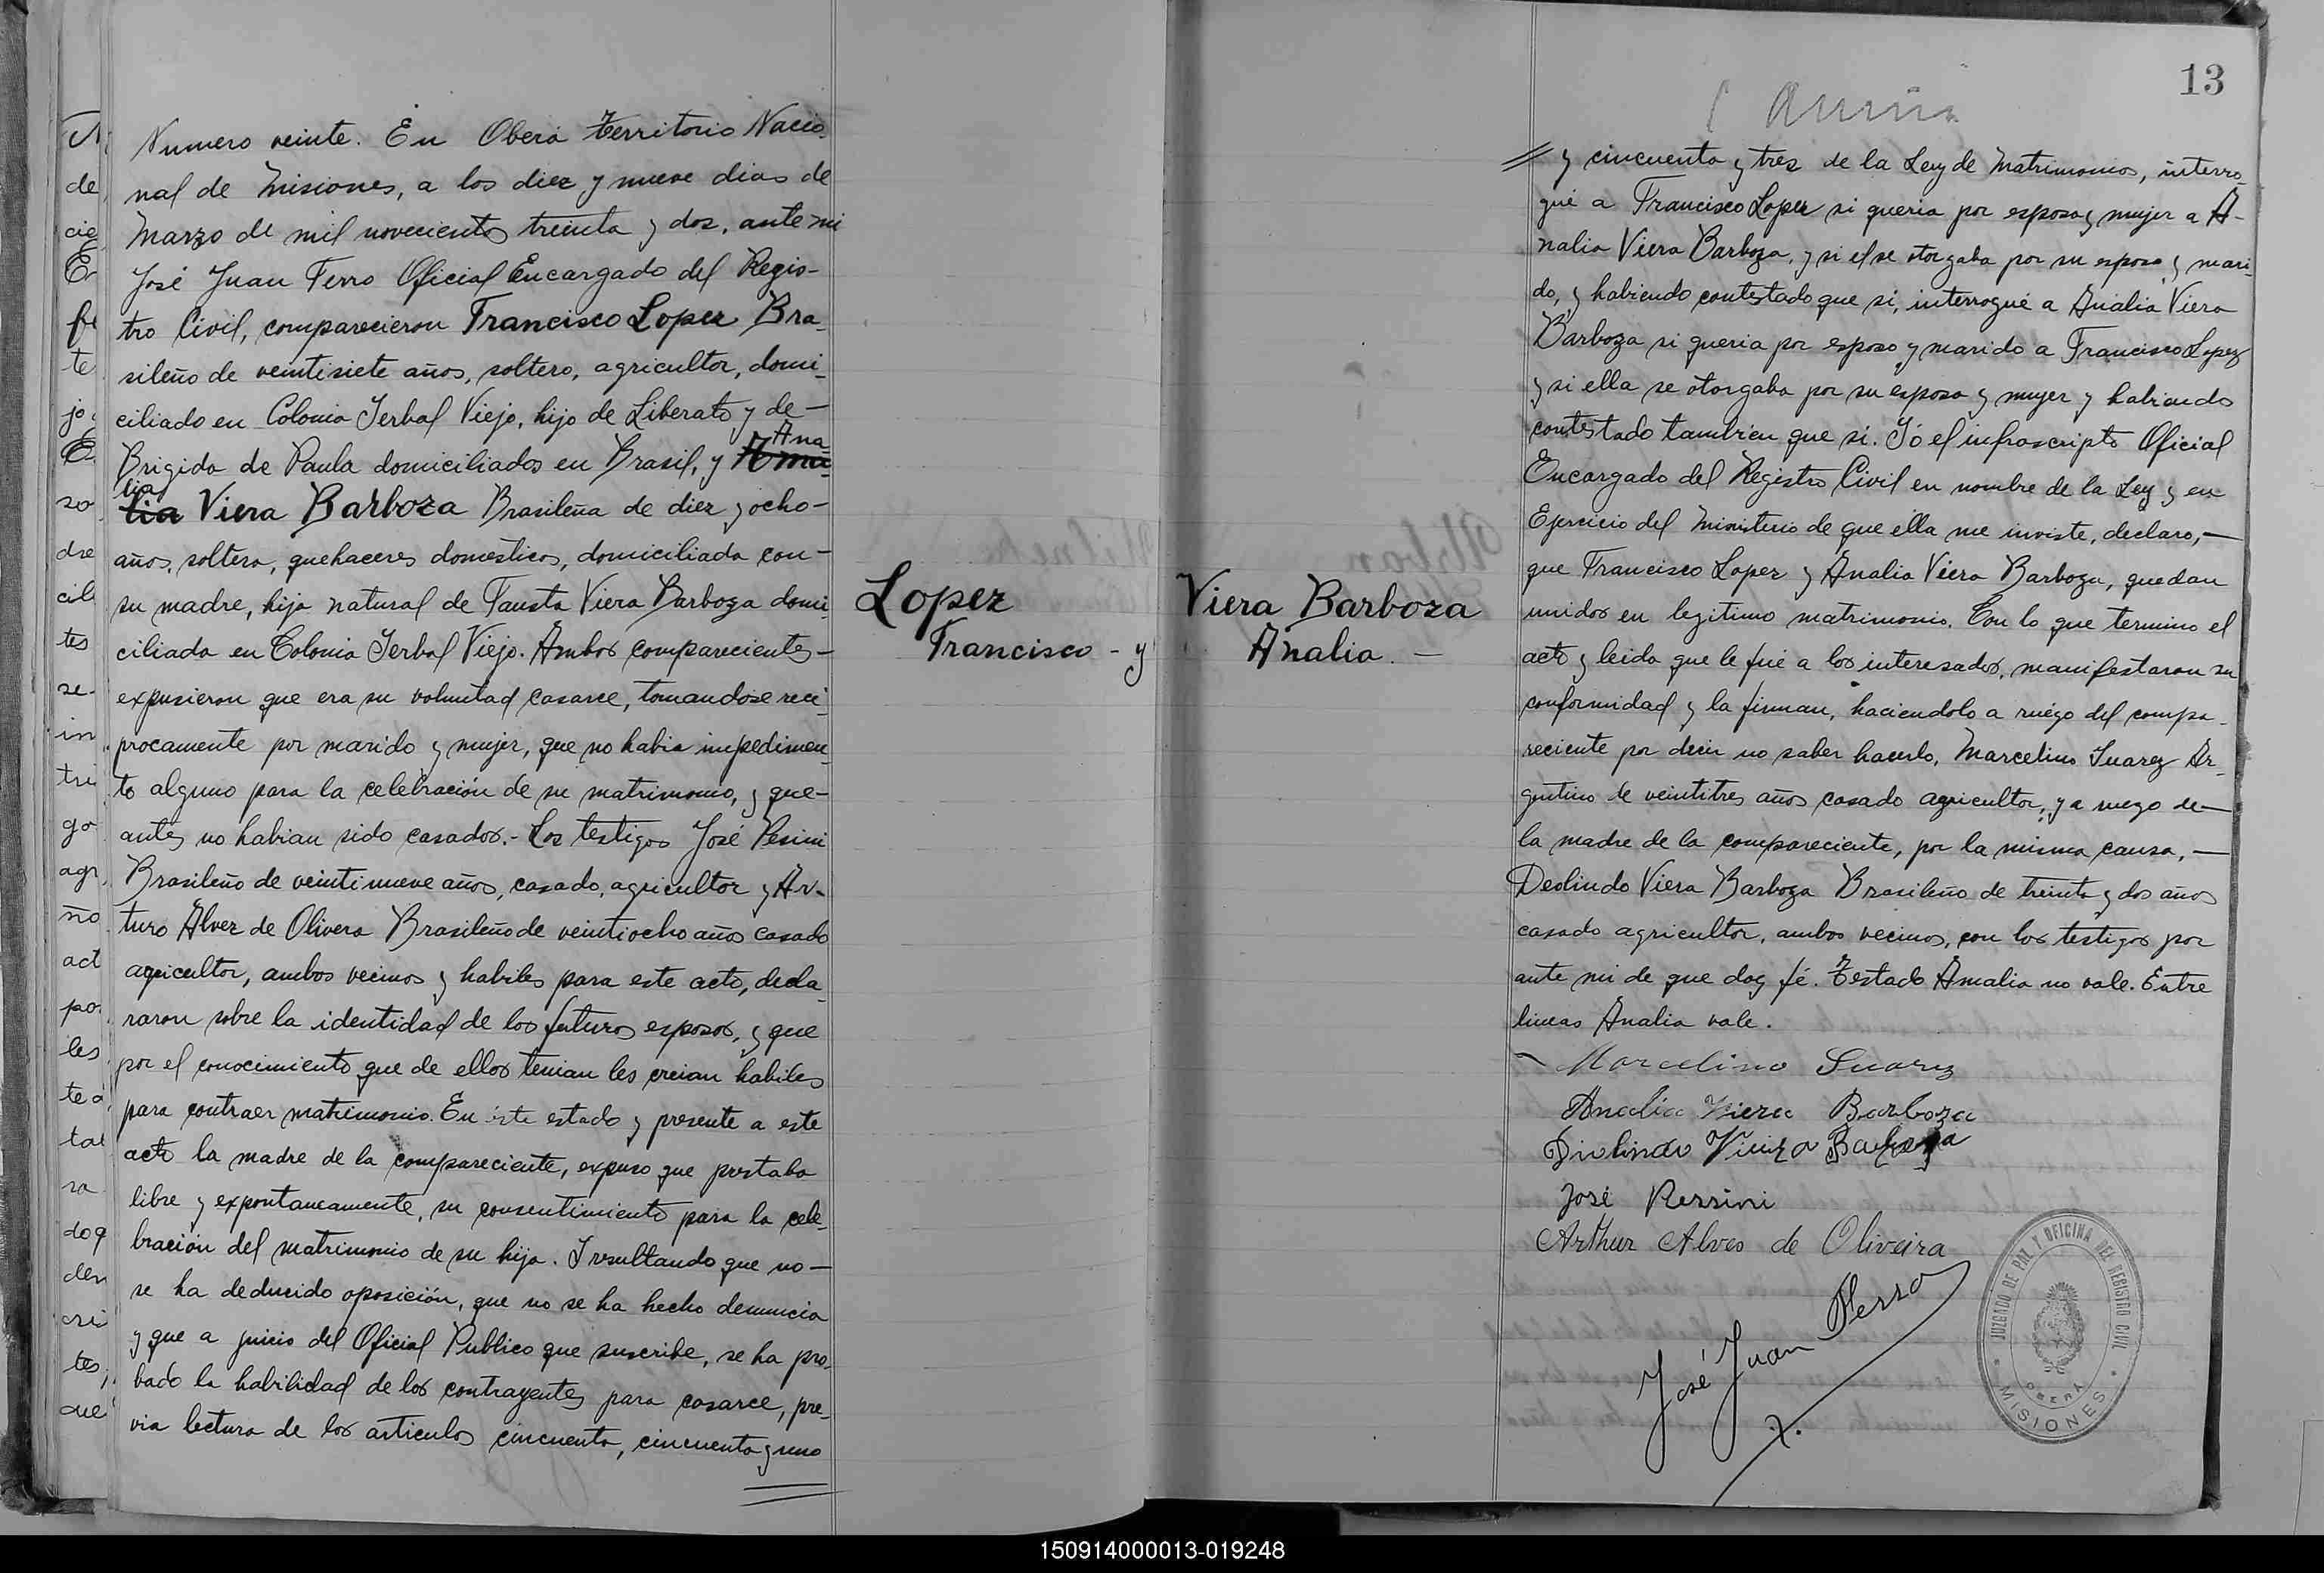 Numero veinte. En Oberá Territorio Nacio-
nal de Misiones, a los diez y nueve dias de
Marzo de mil novecientos treinta y dos, ante mi
José Juan Ferro Oficial Encargado del Regis-
tro Civil, comparecieron Francisco Lopez Bra-
sileño de veintisiete años, soltero, agricultor, domi-
ciliado en Colonia Yerbal Viejo, hijo de Liberato y de-
Ana
Brigida de Paula domiciliados en Brasil, y Ama
lia
lia Viera Barboza Brasileña de diez y ocho-
años, soltera, quehaceres domesticos, domiciliada con-
su madre, hija natural de Fausta Viera Barboza domi-
ciliada en Colonia Yerbal Viejo. Ambos comparecientes-
expusieron que era su voluntad casarce, tomandose reci-
procamente por marido y mujer, que no habia impedimen-
to alguno para la celebración de su matrimonio, y que-
antes no habian sido casados.- Los testigos José Pesini
Brasileño de veintinueve años, casado, agricultor y Ar-
turo Alvez de Olivera Brasileño de veintiocho años casado
agricultor, ambos vecinos y habiles para este acto, decla-
raron sobre la identidad de los futuros esposos, y que
por el conocimiento que de ellos tenian les creian habiles
para contraer matrimonio. En este estado y presente a este
acto la madre de la compareciente, expuso que prestaba
libre y expontaneamente, su consentimiento para la cele-
bración del matrimonio de su hija. I resultando que no-
se ha deducido oposición, que no se ha hecho denuncia
y que a juicio del Oficial Publico que suscribe, se ha pro-
bado la habilidad de los contrayentes para casarce, pre-
via lectura de los articulos cincuenta, cincuenta y uno
Lopez
Francisco - y
Viera Barboza
Analia. -
13
// y cincuenta y tres de la Ley de Matrimonios, interro-
gué a Francisco Lopez si queria por esposa y mujer a A-
nalia Viera Barboza, y si el se otorgaba por su esposo y mari-
do, y habiendo contestado que si, interrogué a Analia Viera
Barboza si queria por esposo y marido a Francisco Lopez
y si ella se otorgaba por su esposa y mujer y habiendo
contestado tambien que si. Yó el infrascripto Oficial
Encargado del Registro Civil en nombre de la Ley y en
Ejercicio del Ministerio de que ella me inviste, declaro,-
que Francisco Lopez y Analia Viera Barboza, quedan
unidos en legitimo matrimonio. Con lo que termino el
acto y leida que le fue a los interesados, manifestaron su
conformidad y la firman, haciendolo a ruégo del compa-
reciente por decir no saber hacerlo, Marcelino Suarez Ar-
gentino de veintitres años casado agricultor, y a ruego de-
la madre de la compareciente, por la misma causa,-
Deolindo Viera Barboza Brasileño de treinta y dos años
casado agricultor, ambos vecinos, con los testigos por
ante mi de que doy fé. Testado Amalia no vale. Entre
lineas Analia vale.
Marcelino Suarez
Analia Viera Barboza
Diolindo Vieira Barboza
José Pessini
Arthur Alves de Oliveira
José Juan Ferro
JUZGADO DE PAZ Y OFICINA DEL REGISTRO CIVIL
OBERÁ
MISIONES
150914000013-019248